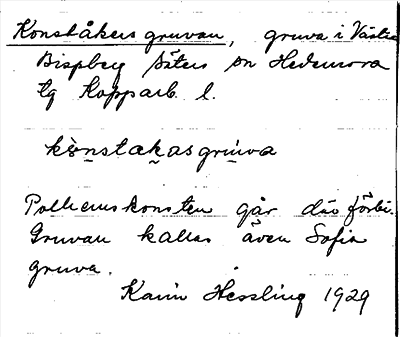 Konståkers gruvan, gruva i Västra
Bispberg Säters sn Hedemora
tg Kopparb. l.
kònstakasgrùva
Polhemskonsten går där förbi.
Gruvan kallas även Sofia
gruva.
Karin Hessling 1929